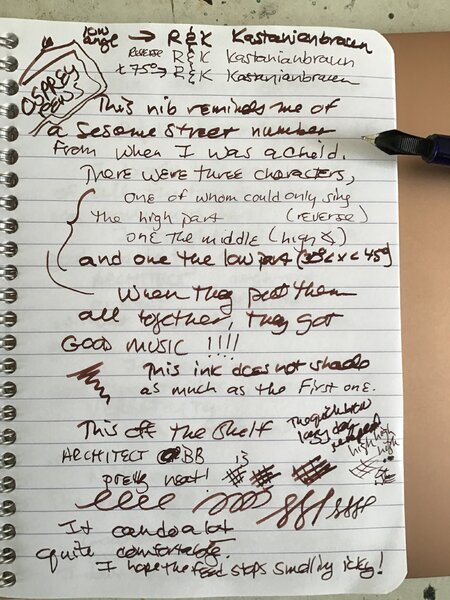 low angle → R&K Kastanianbraun
REVERSE R&K Kastanianbraun
±75° → R&K Kastanianbraun
OSPREY PENS
This nib reminds me of
a Sesame Street number
From when I was a child.
There were three characters,
one of whom could only sing
the high part (reverse)
one the middle (high ∡)
and one the low part (35° < x < 45°)
When they put them
all together, they got
GOOD MUSIC !!!!
This ink does not shade
as much as the first one.
This off the shelf
The quick brown
lazy dog
high high
high
ARCHITECT BB is
pretty neat!
It can do a lot
quite comfortable.
I hope the feed stops smelling icky!